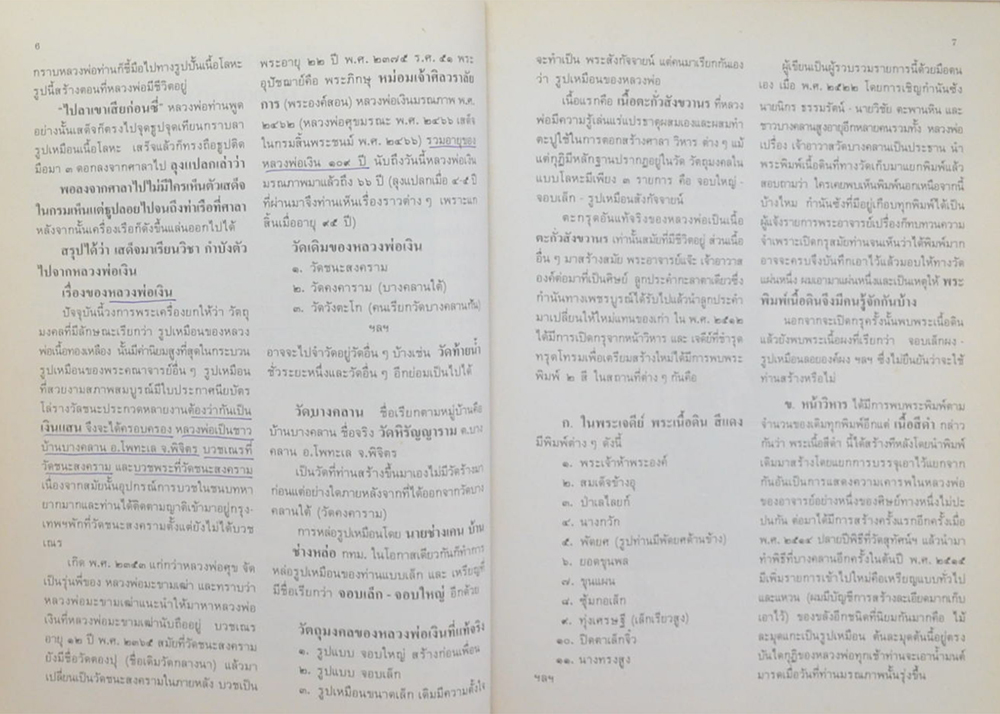 6
กราบหลวงพ่อท่านก็ชี้มือไปทางรูปปั้นเนื้อโลหะ
รูปนี้สร้างตอนที่หลวงพ่อมีชีวิตอยู่
"ไปลาเขาเสียก่อนซี่" หลวงพ่อท่านพูด
อย่างนั้นเสด็จก็ตรงไปจุดธูปจุดเทียนกราบลา
รูปเหมือนเนื้อโลหะ เสร็จแล้วก็ทรงถือธูปติด
มือมา ๓ ดอกลงจากศาลาไป ลุงแปลกเล่าว่า
พอลงจากศาลาไปไม่มีใครเห็นตัวเสด็จ
ในกรมเห็นแต่ธูปลอยไปจนถึงท่าเรือที่ศาลา
หลังจากนั้นเครื่องเรือก็ดังขึ้นแล่นออกไปได้
สรุปได้ว่า เสด็จมาเรียนวิชา กำบังตัว
ไปจากหลวงพ่อเงิน
เรื่องของหลวงพ่อเงิน
ปัจจุบันนี้วงการพระเครื่องยกให้ว่า วัตถุ
มงคลที่มีลักษณะเรียกว่า รูปเหมือนของหลวง
พ่อเนื้อทองเหลือง นั้นมีค่านิยมสูงที่สุดในกระบวน
รูปเหมือนของพระคณาจารย์อื่น ๆ รูปเหมือน
ที่สวยงามสภาพสมบูรณ์มีใบประกาศนียบัตร
โล่รางวัลชนะประกวดหลายงานต้องว่ากันเป็น
เงินแสน จึงจะได้ครอบครอง หลวงพ่อเป็นชาว
บ้านบางคลาน อ.โพทะเล จ.พิจิตร บวชเณรที่
วัดชนะสงคราม และบวชพระที่วัดชนะสงคราม
เนื่องจากสมัยนั้นอุปกรณ์การบวชในชนบทหา
ยากมากและท่านได้ติดตามญาติเข้ามาอยู่กรุง-
เทพฯพักที่วัดชนะสงครามตั้งแต่ยังไม่ได้บวช
เณร
เกิด พ.ศ. ๒๓๕๓ แก่กว่าหลวงพ่อศุข จัด
เป็นรุ่นพี่ของ หลวงพ่อมะขามเฒ่า และทราบว่า
หลวงพ่อมะขามเฒ่าแนะนำให้มาหาหลวงพ่อ
เงินที่หลวงพ่อมะขามเฒ่านับถืออยู่ บวชเณร
อายุ ๑๒ ปี พ.ศ. ๒๓๖๕ สมัยที่วัดชนะสงคราม
ยังมีชื่อวัดตองปุ (ชื่อเดิมวัดกลางนา) แล้วมา
เปลี่ยนเป็นวัดชนะสงครามในภายหลัง บวชเป็น
พระอายุ ๒๒ ปี พ.ศ. ๒๓๗๕ ร.ศ. ๕๑ พระ
อุปัชฌาย์คือ พระภิกษุ หม่อมเจ้าศิลวราลัย
การ (พระองค์สอน) หลวงพ่อเงินมรณภาพ พ.ศ.
๒๔๖๒ (หลวงพ่อศุขมรณะ พ.ศ. ๒๔๖๖ เสด็จ
ในกรมสิ้นพระชนม์ พ.ศ. ๒๔๖๖) รวมอายุของ
หลวงพ่อเงิน ๑๐๙ ปี นับถึงวันนี้หลวงพ่อเงิน
มรณภาพมาแล้วถึง ๖๖ ปี (ลุงแปลกเมื่อ ๔-๕ ปี
ที่ผ่านมาจึงท่านเห็นเรื่องราวต่าง ๆ เพราะแก
สิ้นเมื่ออายุ ๙๕ ปี)
วัดเดิมของหลวงพ่อเงิน
๑. วัดชนะสงคราม
๒. วัดคงคาราม (บางคลานใต้)
๓. วัดวังตะโก (คนเรียกวัดบางคลานกัน)
ฯลฯ
อาจจะไปจำวัดอยู่วัดอื่น ๆ บ้างเช่น วัดท้ายน้ำ
ชั่วระยะหนึ่งและวัดอื่น ๆ อีกย่อมเป็นไปได้
วัดบางคลาน ชื่อเรียกตามหมู่บ้านคือ
บ้านบางคลาน ชื่อจริง วัดหิรัญญาราม ต.บาง
คลาน อ.โพทะเล จ.พิจิตร
เป็นวัดที่ท่านสร้างขึ้นมาเองไม่มีวัดร้างมา
ก่อนแต่อย่างใดภายหลังจากที่ได้ออกจากวัดบาง
คลานใต้ (วัดคงคาราม)
การหล่อรูปเหมือนโดย นายช่างแคน บ้าน
ช่างหล่อ กทม. ในโอกาสเดียวกันก็ทำการ
หล่อรูปเหมือนของท่านแบบเล็ก และ เหรียญที่
มีชื่อเรียกว่า จอบเล็ก - จอบใหญ่ อีกด้วย
วัตถุมงคลของหลวงพ่อเงินที่แท้จริง
๑. รูปแบบ จอบใหญ่ สร้างก่อนเพื่อน
๒. รูปแบบ จอบเล็ก
๓. รูปเหมือนขนาดเล็ก เดิมมีความตั้งใจ
7
จะทำเป็น พระสังกัจจายน์ แต่คนมาเรียกกันเอง
ว่า รูปเหมือนของหลวงพ่อ
เนื้อแรกคือ เนื้อตะกั่วสังขวานร ที่หลวง
พ่อมีความรู้เล่นแร่แปรธาตุผสมเองและผสมทำ
ตะปูใช้ในการตอกสร้างศาลา วิหาร ต่าง ๆ แม้
แต่กุฏิมีหลักฐานปรากฏอยู่ในวัด วัตถุมงคลใน
แบบโลหะมีเพียง ๓ รายการ คือ จอบใหญ่ -
จอบเล็ก - รูปเหมือนสังกัจจายน์
ตะกรุดอันแท้จริงของหลวงพ่อเป็นเนื้อ
ตะกั่วสังขวานร เท่านั้นสมัยที่มีชีวิตอยู่ ส่วนเนื้อ
อื่น ๆ มาสร้างสมัย พระอาจารย์แจ๊ะ เจ้าอาวาส
องค์ต่อมาที่เป็นศิษย์ ลูกประคำกะลาตาเดียวซึ่ง
กำนันทางเพชรบูรณ์ได้รับไปแล้วนำลูกประคำ
มาเปลี่ยนให้ใหม่แทนของเก่า ใน พ.ศ. ๒๕๑๒
ได้มีการเปิดกรุจากหน้าวิหาร และ เจดีย์ที่ชำรุด
ทรุดโทรมเพื่อเตรียมสร้างใหม่ได้มีการพบพระ
พิมพ์ ๒ สี ในสถานที่ต่าง ๆ กันคือ
ก. ในพระเจดีย์ พระเนื้อดิน สีแดง
มีพิมพ์ต่าง ๆ ดังนี้
๑. พระเจ้าห้าพระองค์
๒. สมเด็จข้างอุ
๓. ป่าเลไลยก์
๔. นางกวัก
๕. พัดยศ (รูปท่านมีพัดยศด้านข้าง)
๖. ยอดขุนพล
๗. ขุนแผน
๘. ซุ้มกอเล็ก
๙. ทุ่งเศรษฐี (เล็กเรียวสูง)
๑๐. ปิดตาเล็กจิ๋ว
๑๑. นางทรงสูง
ฯลฯ
ผู้เขียนเป็นผู้รวบรวมรายการนี้ด้วยมือตน
เอง เมื่อ พ.ศ. ๒๕๒๒ โดยการเชิญกำนันซัง
นายนิกร ธรรมรัตน์ - นายวิชัย ตะพานหิน และ
ชาวบางคลานสูงอายุอีกหลายคนรวมทั้ง หลวงพ่อ
เปรื่อง เจ้าอาวาสวัดบางคลานเป็นประธาน นำ
พระพิมพ์เนื้อดินที่ทางวัดเก็บมาแยกพิมพ์แล้ว
สอบถามว่า ใครเคยพบเห็นพิมพ์นอกเหนือจากนี้
บ้างไหม กำนันซังที่มีอยู่เกือบทุกพิมพ์ได้เป็น
ผู้แจ้งรายการพระอาจารย์เปรื่องก็ทบทวนความ
จำเพราะเปิดกรุสมัยท่านจนเห็นว่าได้พิมพ์มาก
อาจจะครบจึงบันทึกเอาไว้แล้วมอบให้ทางวัด
แผ่นหนึ่ง ผมเอามาแผ่นหนึ่งและเป็นเหตุให้ พระ
พิมพ์เนื้อดินจึงมีคนรู้จักกันบ้าง
นอกจากจะเปิดกรุครั้งนั้นพบพระเนื้อดิน
แล้วยังพบพระเนื้อผงที่เรียกว่า จอบเล็กผง -
รูปเหมือนลอยองค์ผง ฯลฯ ซึ่งไม่ยืนยันว่าจะใช้
ท่านสร้างหรือไม่
ข. หน้าวิหาร ได้มีการพบพระพิมพ์ตาม
จำนวนของเดิมทุกพิมพ์อีกแต่ เนื้อสีดำ กล่าว
กันว่า พระเนื้อสีดำ นี้ได้สร้างทีหลังโดยนำพิมพ์
เดิมมาสร้างโดยแยกการบรรจุเอาไว้แยกจาก
กันอันเป็นการแสดงความเคารพในหลวงพ่อ
ของอาจารย์อย่างหนึ่งของศิษย์ทางหนึ่งไม่ปะ
ปนกัน ต่อมาได้มีการสร้างครั้งแรกอีกครั้งเมื่อ
พ.ศ. ๒๕๑๔ ปลายปีพิธีที่วัดสุทัศน์ฯ แล้วนำมา
ทำพิธีที่บางคลานอีกครั้งในต้นปี พ.ศ. ๒๕๑๕
มีเพิ่มรายการเข้าไปใหม่คือเหรียญแบบทั่วไป
และแหวน (ผมมีบัญชีการสร้างละเอียดมากเก็บ
เอาไว้) ของขลังอีกชนิดที่นิยมกันมากคือ ไม้
ละมุดแกะเป็นรูปเหมือน ต้นละมุดต้นนี้อยู่ตรง
บันไดกุฏิของหลวงพ่อทุกเช้าท่านจะเอาน้ำมนต์
มารดเมื่อวันที่ท่านมรณภาพนั้นรุ่งขึ้น